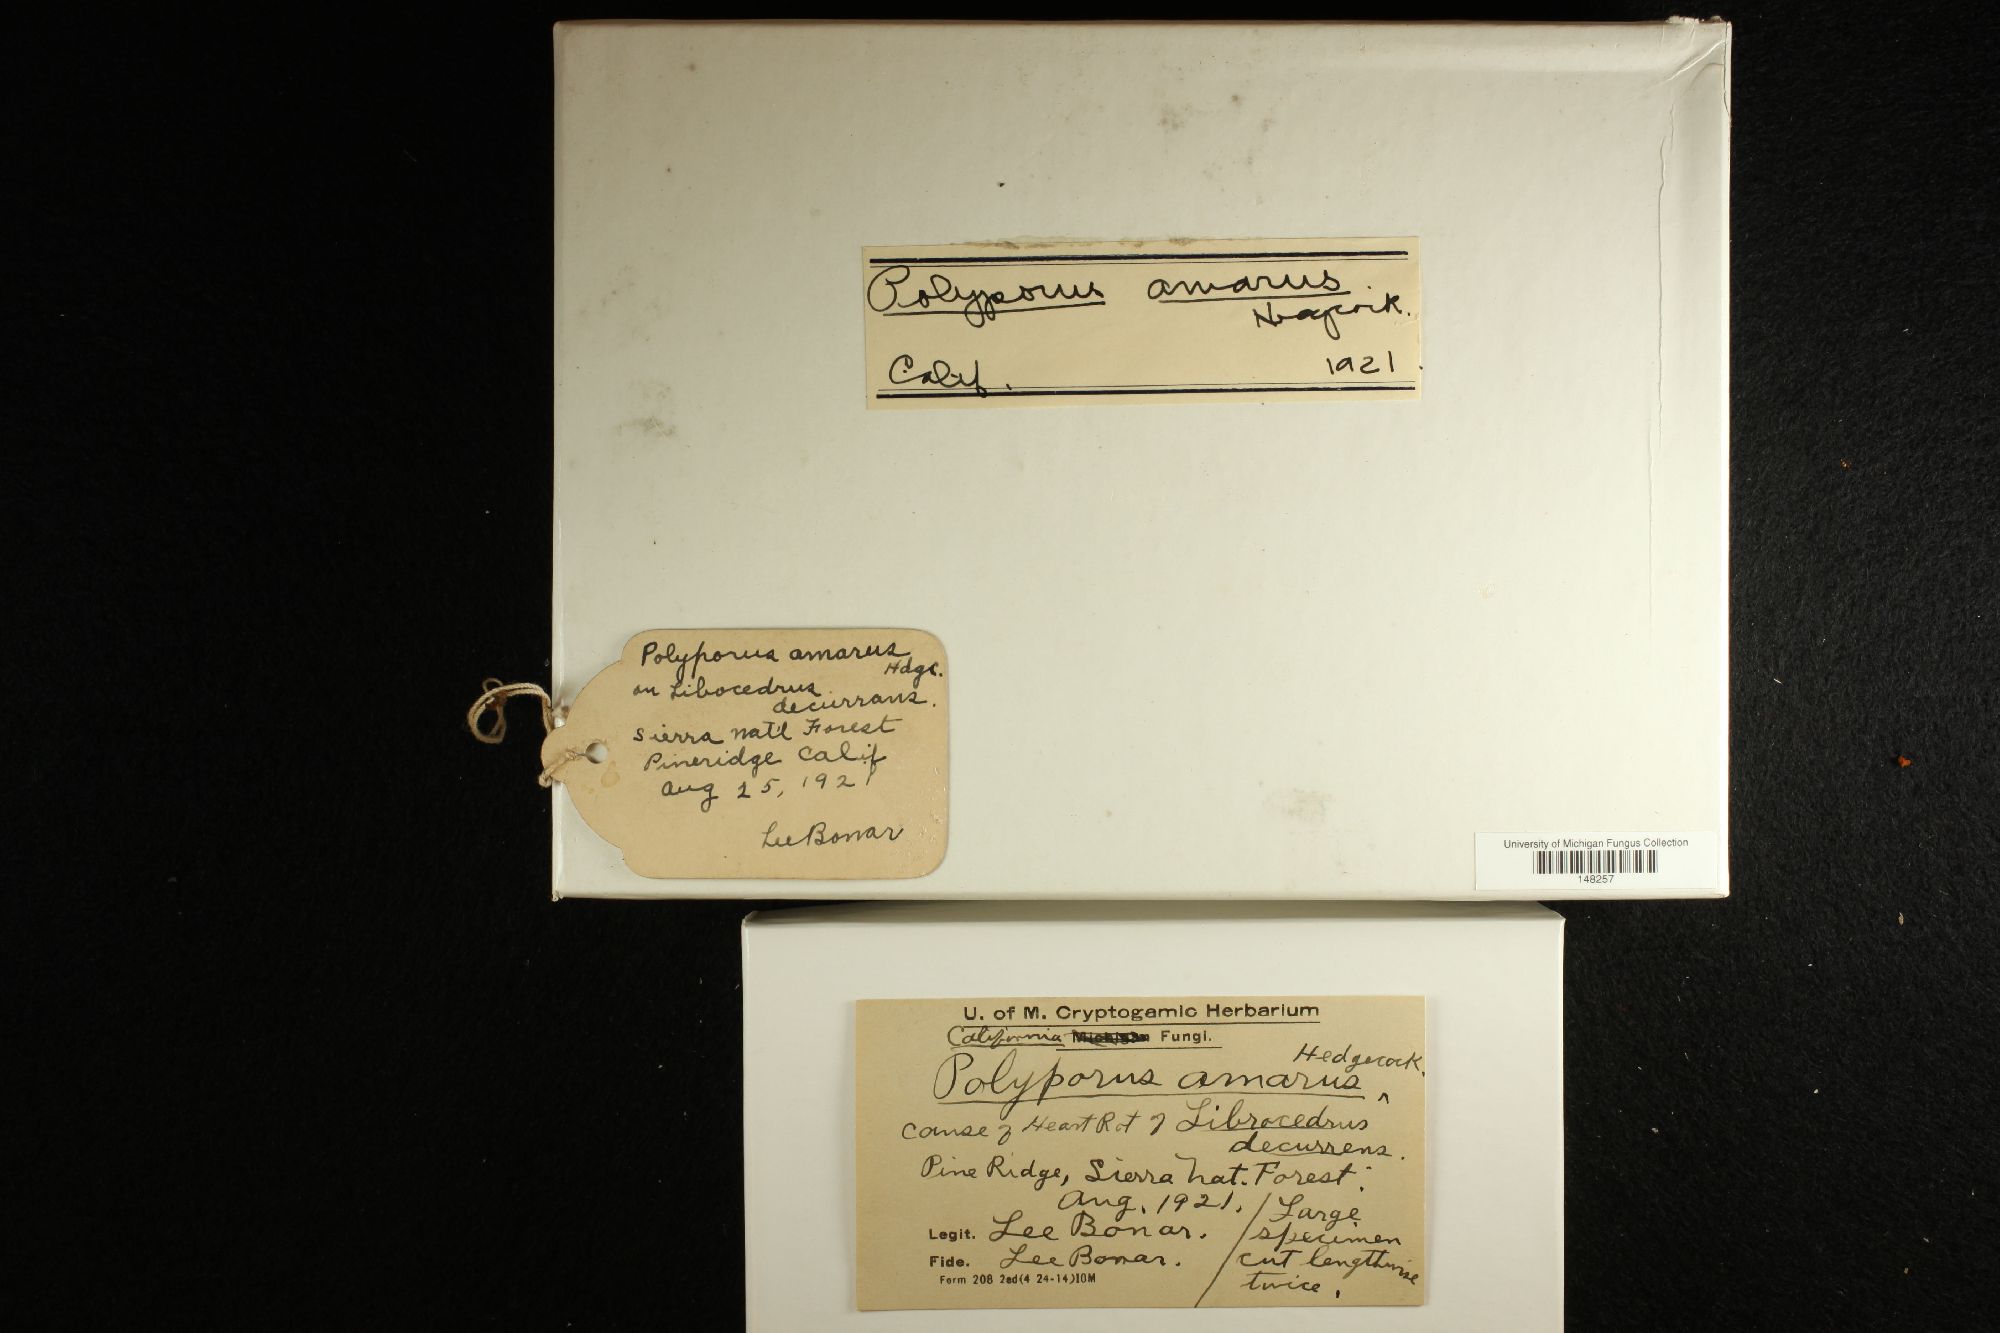 Polyporus amarus
Calif. 1921.
Polyporus amarus
Hdgc.
on Libocedrus
decurrans.
Sierra Nat'l Forest
Pineridge Calif
Aug 25, 1921
Lee Bonar
University of Michigan Fungus Collection
148257
U. of M. Cryptogamic Herbarium
California Michigan Fungi.
Hedgcock.
Polyporus amarus ^
Cause of Heart Rot of Librocedrus
decurrens.
Pine Ridge, Sierra Nat. Forest.
Aug. 1921.
Legit. Lee Bonar.
Fide. Lee Bonar.
Form 208 2ed(4 24-14)10M
Large
specimen
cut lengthwise
twice.